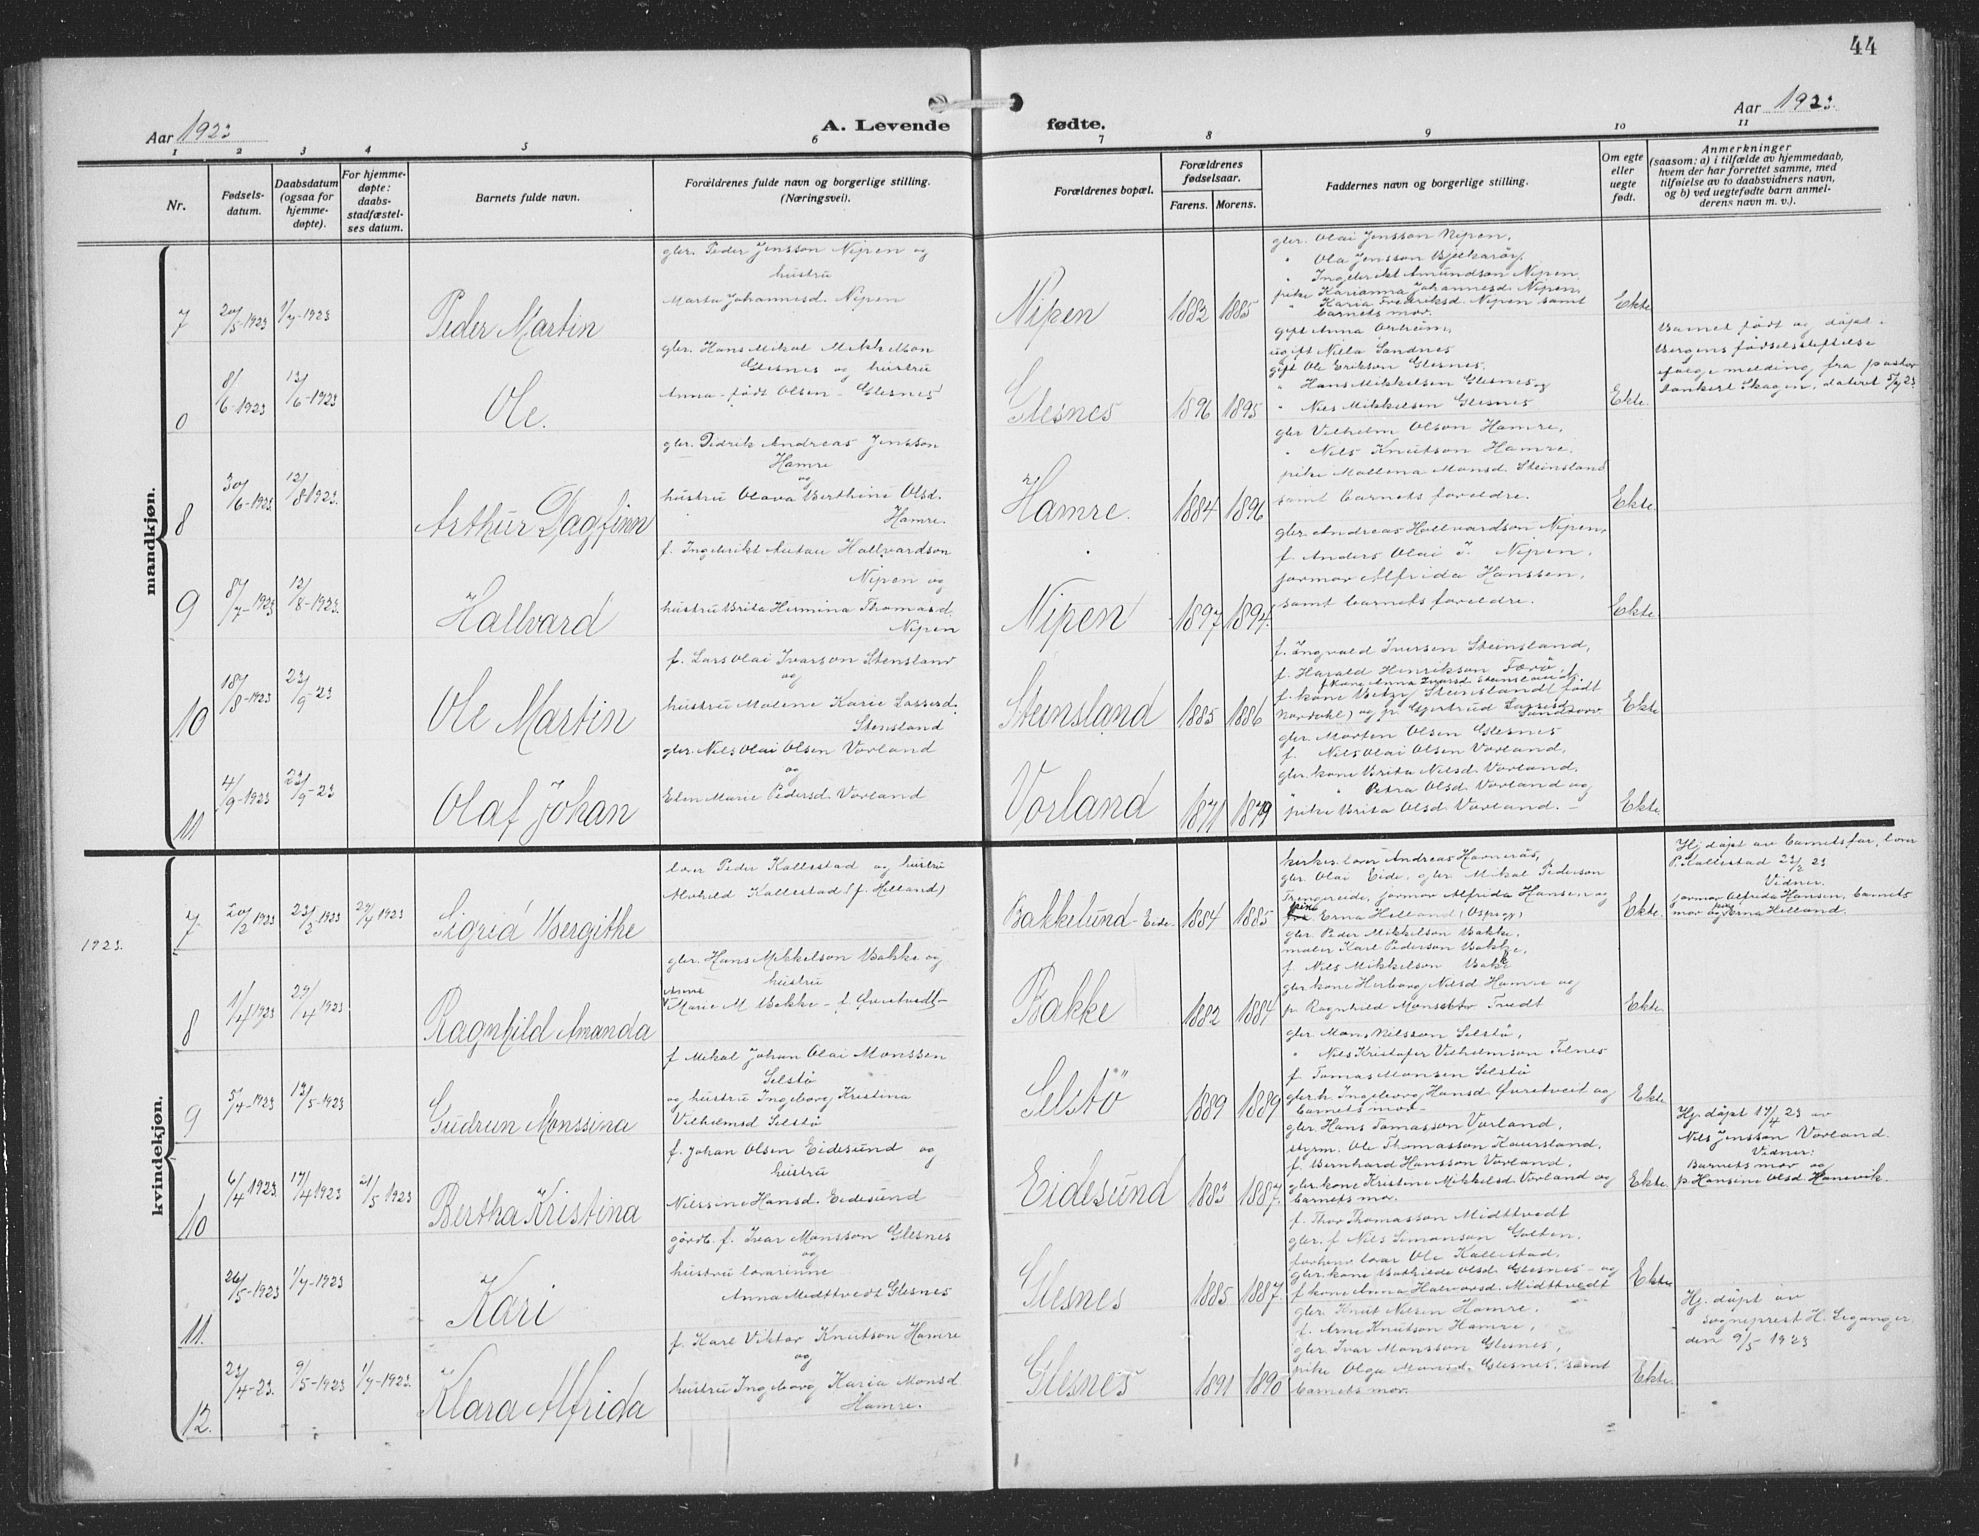 44
Aar 1923
A. Levende fødte.
Aar 1923.
1 2 3 4 5 6 7 8 9 10 11
Nr.
Fødsels-
datum.
Daabsdatum
(ogsaa for
hjemme-
døpte).
For hjemme-
døpte:
daabs-
stadfæstel-
ses datum.
Barnets fulde navn.
Forældrenes fulde navn og borgerlige stilling.
(Næringsvei).
Forældrenes bopæl.
Forældrenes
fødselsaar.
Farens. Morens.
Faddernes navn og borgerlige stilling.
Om egte
eller
uegte
født.
Anmerkninger
(saasom: a) i tilfælde av hjemmedaab,
hvem der har forrettet samme, med
tilføielse av to daabsvidners navn,
og b) ved uegtefødte barn anmel-
derens navn m. v.).
mandkjøn.
7 20/5-1923 1/7-1923 Peder Martin
gbr. Peder Jensson Nipen og
hustru
Marta Johannesd. Nipen
Nipen 1882 1885
gbr. Olai Jensson Nipen,
" Ola Jensson Bjelkarøy,
" Ingebrikt Amundson Nipen,
pike Karianna Johannesd. Nipen,
" Karia Fredriksd. Nipen samt
barnets mor.
Ekte
0 8/6-1923 13/6-1923 Ole.
gbr. Hans Mikal Mikkelson
Glesnes og hustru
Anna født Olsen Glesnes
Glesnes 1896 1895
gift Anna
ugift Nilla Sandnes
gift Ole Erikson Glesnes,
" Hans Mikkelsen Glesnes og
" Niels Mikkelsen Glesnes
Ekte.
Barnet født og døpt i
Bergens fødselsstiftelse
ifølge melding fra pastor
Tankert Skagen, dateret 5/7 23
8 30/6-1923 12/8-1923. Arthur Dagfinn
gbr. Didrik Andreas Jensson
Hamre
og
hustru Olava Berthine Olsd.
Hamre.
Hamre. 1884 1896
gbr Vilhelm Olson Hamre,
" Nils Knutson Hamre,
pike Mallena Monsd. Steinsland
samt barnets foreldre.
Ekte.
9 8/7-1923 12/8-1923. Hallvard
f. Ingebrikt Anton Hallvardson
Nipen og
hustru Brita Hermina Thomasd
Nipen
Nipen 1897 1894.
gbr. Andreas Hallvardson Nipen,
f. Anders Olai J. Nipen,
jormor Alfrida Hanssen,
samt barnets foreldre.
Ekte.
10 18/8-1923 23/9-23 Ole Martin
f. Lars Olai Ivarson Stensland
og
hustru Malene Karie Lasserd.
Stensland
Steinsland 1885 1886
f. Ingvald Iversen Steinsland,
f. Harald Henrikson Færø,
f. kone Anna Ivarsd. Steinsland,
f. kone Betzy Steinslandt født
Nordahl) og p. Gjertrud Lasserd
Ekte
11 4/9-1923 23/9-23 Olaf Johan
gbr. Nils Olai Olsen Vorland
og
Elen Marie Pedersd. Vorland
Vorland 1871 1879
gbr. Morten Olsen Glesnes
f. Nils Olai Olsen Vorland,
gbr. kone Brita Nilsd. Vorland,
" " Petra Olsd. Vorland og
pike Brita Olsd. Vorland.
Ekte.
1923.
kvindekjøn.
7 20/2 1923 23/2-1923 29/4 1923 Sigrid Bergithe
lærer Peder Kallestad og hustru
Alvhild Kallestad (f. Helland)
Bakkelund-Eide. 1884 1885
kirkes. lærer Andreas Havnerås,
gbr. Olai Eide, gbr Mikal Pederson
Trengereide, jormor Alfrida Hansen og
Erna Helland (Ospøy)
Ekte.
Hj. døpt av barnets far, lærer
P. Kallestad 23/2 23
Vidner.
jormor Alfrida Hansen, barnets
mor og Erna Helland.
8 1/4 1923 29/4 1923 Ragnhild Amanda
gbr. Hans Mikkelson Bakke og
hustru
Anne
Marie M Bakke - f. Øvretvedt
Bakke 1882 1884
gbr. Peder Mikkelson Bakke,
maler Karl Pederson Bakke,
f. Nils Mikkelson Bakke
gbr kone Herborg Nilsd Hamre og
p. Ragnhild Tvedt
Ekte.
9 5/4-1923 13/5-1923 Gudrun Monssina
f Mikal Johan Olai Monssen
Selstø
og hustru Ingeborg Kristina
Vilhelmsd Selstø
Selstø 1889 1889
gbr. Mons Nilsson Selstø,
" Nils Kristofer Vilhelmson Telnes
f. Tomas Monsen Selstø
gbr.h. Ingeborg Hansd Øvretveit og
barnets mor.
Ekte
10 6/4 1923. 17/4 1923 21/5 1923 Bertha Kristina
f. Johan Olsen Eidesund og
hustru
Nilssine Hansd. Eidesund
Eidesund 1883 1887.
gbr. Hans Tomasson Vorland,
styrm. Ole Thomasson Kaursland,
f. Bernhard Hansson Vorland,
gbr. kone Kristine Mikkelsd Vorland og
barnets mor.
Ekte.
Hj. døpt 17/4 23 av
Nils Jensson Vorland.
Vidner:
Barnets mor og
p. Hansine Olsd. Hamsvik.
11. 26/5-1923 1/7-1923 Kari
gårdb. f. Ivar Monsson Glesnes
og
hustru lærarinne
Anna Midttvedt Glesnes
Glesnes 1885 1887.
f. Thor Thomasson Midttvedt
gbr. f Nils Simonson Golten,
lærer Ole Kallestad,
gbr. kone Bathilde Olsd. Glesnes og
f kone Anna Halvorsd. Midttvedt
Ekte
12. 23/4-23. 9/5-1923 1/7-1923. Klara Alfrida
f. Karl Viktor Knutson Hamre
og
hustru Ingeborg Karia Monsd.
Hamre.
Glesnes 1891 1890
gbr. Knut Nilsen Hamre,
f. Arne Knutson Hamre,
gbr. Ivar Monsson Glesnes,
pike Olga Monsd. Glesnes, samt
barnets mor.
Ekte.
Hj. døpt av
sogneprest H. Leganger
den 9/5 1923